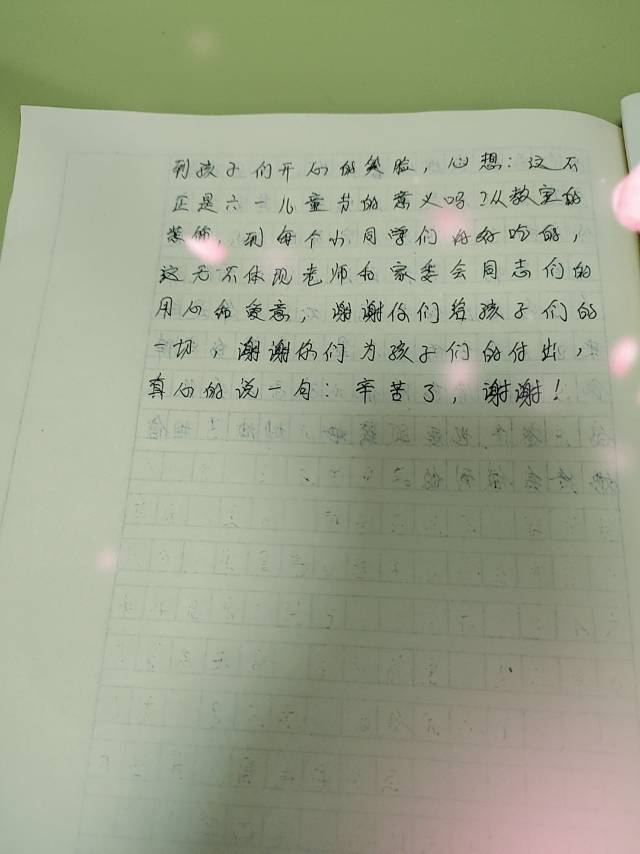 到孩子们开心的笑脸，心想：这不
正是六一儿童节的意义吗？从教室的
装饰，到每个小同学们好好吃的，
这无不体现老师和家委会同志们的
用心和爱意，谢谢你们给孩子们的
一切，谢谢你们为孩子们的付出，
真心的说一句：辛苦了，谢谢！